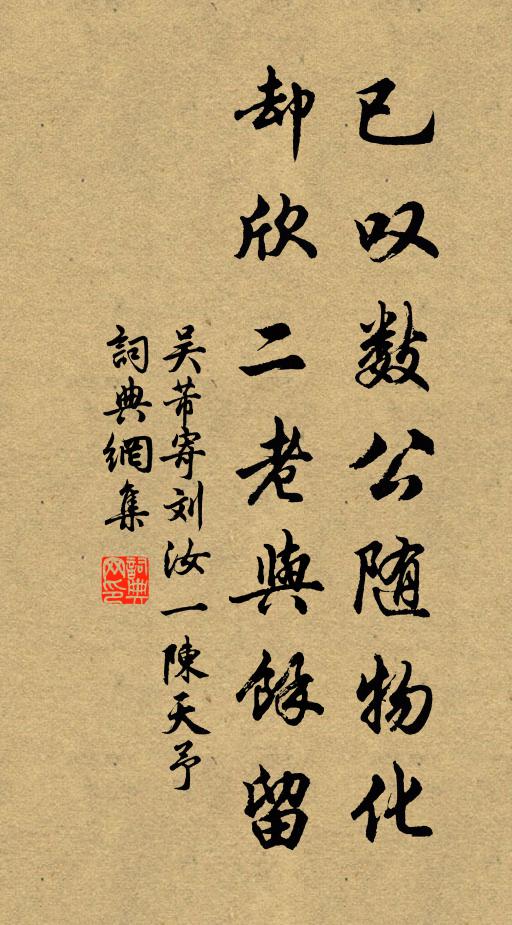 已叹数公随物化
却欣二老與餘留
吴芾寄刘汝一陳天予
詞典網集
詞典網印